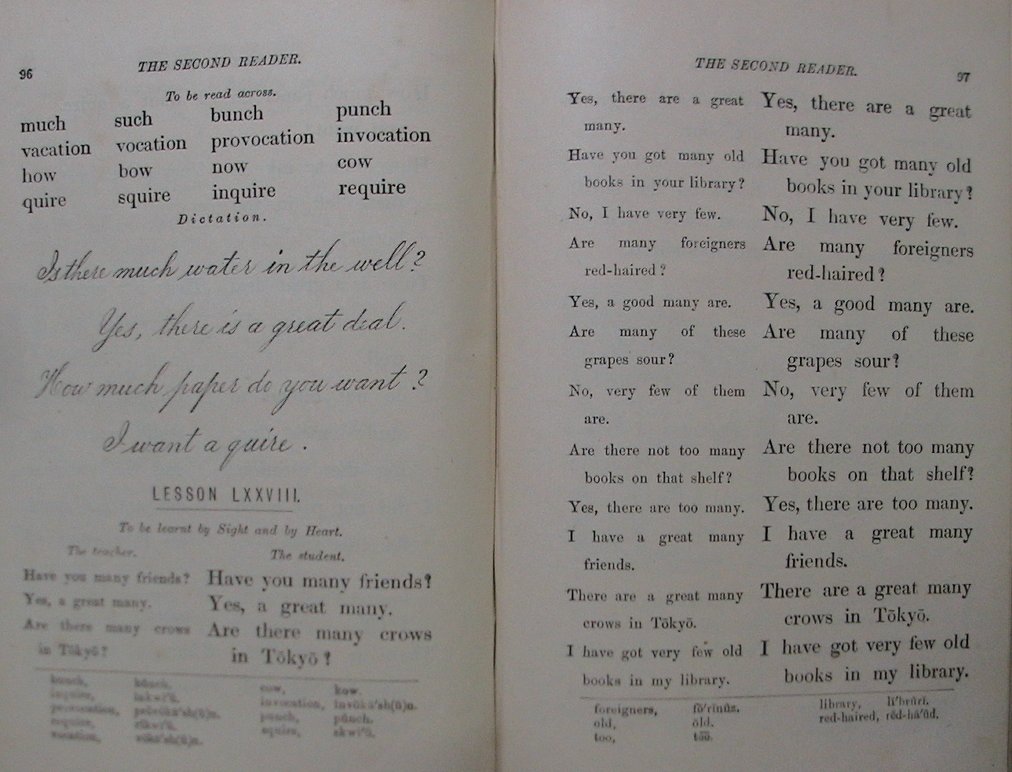 96
THE SECOND READER.
To be read across.
much such bunch punch
vacation vocation provocation invocation
how bow now cow
quire squire inquire require
Dictation.
Is there much water in the well?
Yes, there is a great deal.
How much paper do you want?
I want a quire.
LESSON LXXVIII.
To be learnt by Sight and by Heart.
The teacher. The student.
Have you many friends? Have you many friends?
Yes, a great many. Yes, a great many.
Are there many crows Are there many crows
in Tōkyō? in Tōkyō?
bunch, cow, kow.
inquire, invocation,
provocation, punch, pŭnch.
require, squire,
vacation,
THE SECOND READER.
97
Yes, there are a great Yes, there are a great
many. many.
Have you got many old Have you got many old
books in your library? books in your library?
No, I have very few. No, I have very few.
Are many foreigners Are many foreigners
red-haired? red-haired?
Yes, a good many are. Yes, a good many are.
Are many of these Are many of these
grapes sour? grapes sour?
No, very few of them No, very few of them
are. are.
Are there not too many Are there not too many
books on that shelf? books on that shelf?
Yes, there are too many. Yes, there are too many.
I have a great many I have a great many
friends. friends.
There are a great many There are a great many
crows in Tōkyō. crows in Tōkyō.
I have got very few old I have got very few old
books in my library. books in my library.
foreigners, library,
old, ōld. red-haired,
too,